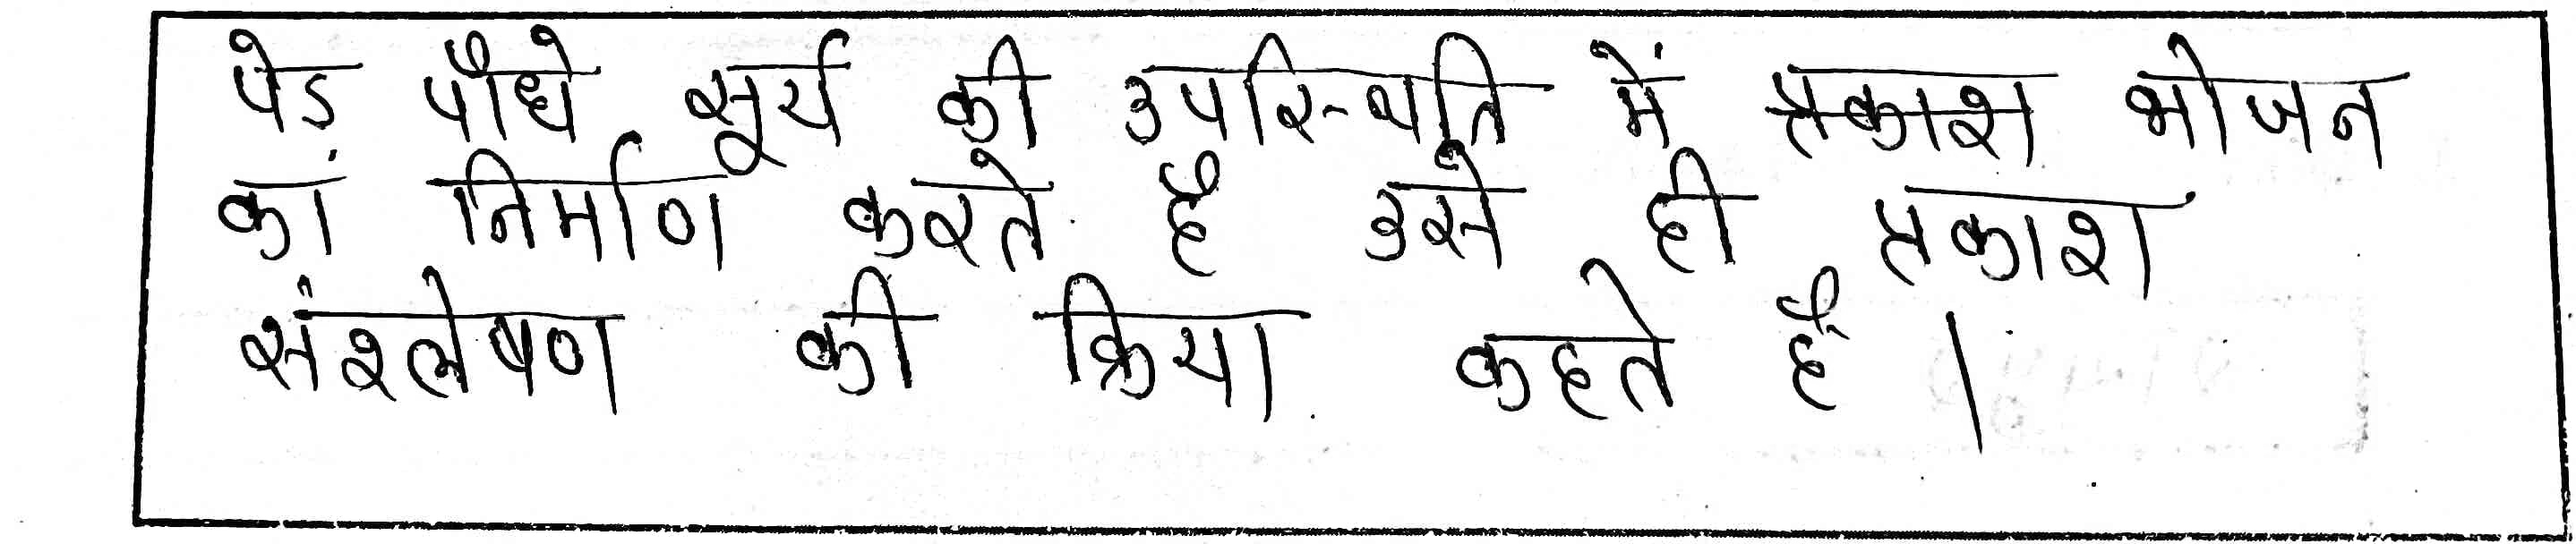 पेड पौधे सूर्य की उपस्थिति में प्रकाश भोजन
कां निर्माण करते है उसे ही प्रकाश
संश्लेषण की क्रिया कहते है।